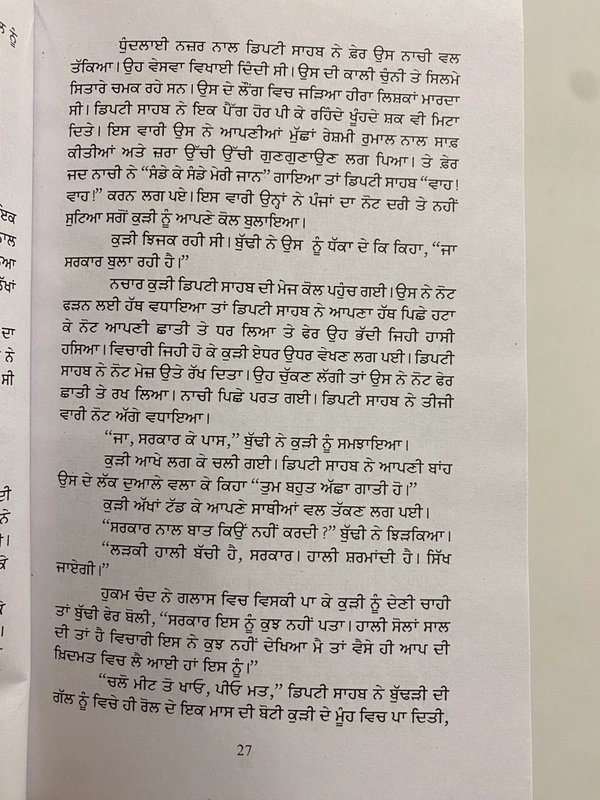 ਧੁੰਦਲਾਈ ਨਜ਼ਰ ਨਾਲ ਡਿਪਟੀ ਸਾਹਬ ਨੇ ਫ਼ੇਰ ਉਸ ਨਾਚੀ ਵਲ
ਤੱਕਿਆ। ਉਹ ਵੇਸਵਾ ਵਿਖਾਈ ਦਿੰਦੀ ਸੀ। ਉਸ ਦੀ ਕਾਲੀ ਚੁੰਨੀ ਤੇ ਸਿਲਮੇ
ਸਿਤਾਰੇ ਚਮਕ ਰਹੇ ਸਨ। ਉਸ ਦੇ ਲੌਂਗ ਵਿਚ ਜੜਿਆ ਹੀਰਾ ਲਿਸ਼ਕਾਂ ਮਾਰਦਾ
ਸੀ। ਡਿਪਟੀ ਸਾਹਬ ਨੇ ਇਕ ਪੈੱਗ ਹੋਰ ਪੀ ਕੇ ਰਹਿੰਦੇ ਖੂੰਹਦੇ ਸ਼ਕ ਵੀ ਮਿਟਾ
ਦਿਤੇ। ਇਸ ਵਾਰੀ ਉਸ ਨੇ ਆਪਣੀਆਂ ਮੁੱਛਾਂ ਰੇਸ਼ਮੀ ਰੁਮਾਲ ਨਾਲ ਸਾਫ਼
ਕੀਤੀਆਂ ਅਤੇ ਜ਼ਰਾ ਉੱਚੀ ਉੱਚੀ ਗੁਣਗੁਣਾਉਣ ਲਗ ਪਿਆ। ਤੇ ਫ਼ੇਰ
ਜਦ ਨਾਚੀ ਨੇ “ਸੰਡੇ ਕੇ ਸੰਡੇ ਮੇਰੀ ਜਾਨ” ਗਾਇਆ ਤਾਂ ਡਿਪਟੀ ਸਾਹਬ “ਵਾਹ!
ਵਾਹ!” ਕਰਨ ਲਗ ਪਏ। ਇਸ ਵਾਰੀ ਉਨ੍ਹਾਂ ਨੇ ਪੰਜਾਂ ਦਾ ਨੋਟ ਦਰੀ ਤੇ ਨਹੀਂ
ਸੁਟਿਆ ਸਗੋਂ ਕੁੜੀ ਨੂੰ ਆਪਣੇ ਕੋਲ ਬੁਲਾਇਆ।
ਕੁੜੀ ਝਿਜਕ ਰਹੀ ਸੀ। ਬੁੱਢੀ ਨੇ ਉਸ ਨੂੰ ਧੱਕਾ ਦੇ ਕਿ ਕਿਹਾ, “ਜਾ
ਸਰਕਾਰ ਬੁਲਾ ਰਹੀ ਹੈ।”
ਨਚਾਰ ਕੁੜੀ ਡਿਪਟੀ ਸਾਹਬ ਦੀ ਮੇਜ ਕੋਲ ਪਹੁੰਚ ਗਈ। ਉਸ ਨੇ ਨੋਟ
ਫੜਨ ਲਈ ਹੱਥ ਵਧਾਇਆ ਤਾਂ ਡਿਪਟੀ ਸਾਹਬ ਨੇ ਆਪਣਾ ਹੱਥ ਪਿਛੇ ਹਟਾ
ਕੇ ਨੋਟ ਆਪਣੀ ਛਾਤੀ ਤੇ ਧਰ ਲਿਆ ਤੇ ਫੇਰ ਉਹ ਭੱਦੀ ਜਿਹੀ ਹਾਸੀ
ਹਸਿਆ। ਵਿਚਾਰੀ ਜਿਹੀ ਹੋ ਕੇ ਕੁੜੀ ਏਧਰ ਉਧਰ ਵੇਖਣ ਲਗ ਪਈ। ਡਿਪਟੀ
ਸਾਹਬ ਨੇ ਨੋਟ ਮੇਜ਼ ਉਤੇ ਰੱਖ ਦਿਤਾ। ਉਹ ਚੁੱਕਣ ਲੱਗੀ ਤਾਂ ਉਸ ਨੇ ਨੋਟ ਫੇਰ
ਛਾਤੀ ਤੇ ਰਖ ਲਿਆ। ਨਾਚੀ ਪਿਛੇ ਪਰਤ ਗਈ। ਡਿਪਟੀ ਸਾਹਬ ਨੇ ਤੀਜੀ
ਵਾਰੀ ਨੋਟ ਅੱਗੇ ਵਧਾਇਆ।
“ਜਾ, ਸਰਕਾਰ ਕੇ ਪਾਸ,” ਬੁੱਢੀ ਨੇ ਕੁੜੀ ਨੂੰ ਸਮਝਾਇਆ।
ਕੁੜੀ ਆਖੇ ਲਗ ਕੇ ਚਲੀ ਗਈ। ਡਿਪਟੀ ਸਾਹਬ ਨੇ ਆਪਣੀ ਬਾਂਹ
ਉਸ ਦੇ ਲੱਕ ਦੁਆਲੇ ਵਲਾ ਕੇ ਕਿਹਾ “ਤੁਮ ਬਹੁਤ ਅੱਛਾ ਗਾਤੀ ਹੋ।”
ਕੁੜੀ ਅੱਖਾਂ ਟੱਡ ਕੇ ਆਪਣੇ ਸਾਥੀਆਂ ਵਲ ਤੱਕਣ ਲਗ ਪਈ।
“ਸਰਕਾਰ ਨਾਲ ਬਾਤ ਕਿਉਂ ਨਹੀਂ ਕਰਦੀ ?” ਬੁੱਢੀ ਨੇ ਝਿੜਕਿਆ।
“ਲੜਕੀ ਹਾਲੀ ਬੱਚੀ ਹੈ, ਸਰਕਾਰ। ਹਾਲੀ ਸ਼ਰਮਾਂਦੀ ਹੈ। ਸਿੱਖ
ਜਾਏਗੀ।”
ਹੁਕਮ ਚੰਦ ਨੇ ਗਲਾਸ ਵਿਚ ਵਿਸਕੀ ਪਾ ਕੇ ਕੁੜੀ ਨੂੰ ਦੇਣੀ ਚਾਹੀ
ਤਾਂ ਬੁੱਢੀ ਫੇਰ ਬੋਲੀ, “ਸਰਕਾਰ ਇਸ ਨੂੰ ਕੁਝ ਨਹੀਂ ਪਤਾ। ਹਾਲੀ ਸੋਲਾਂ ਸਾਲ
ਦੀ ਤਾਂ ਹੈ ਵਿਚਾਰੀ ਇਸ ਨੇ ਕੁਝ ਨਹੀਂ ਦੇਖਿਆ ਮੈ ਤਾਂ ਵੈਸੇ ਹੀ ਆਪ ਦੀ
ਖ਼ਿਦਮਤ ਵਿਚ ਲੈ ਆਈ ਹਾਂ ਇਸ ਨੂੰ।”
“ਚਲੋ ਮੀਟ ਤੋ ਖਾਓ, ਪੀਓ ਮਤ,” ਡਿਪਟੀ ਸਾਹਬ ਨੇ ਬੁੱਢੜੀ ਦੀ
ਗੱਲ ਨੂੰ ਵਿਚੇ ਹੀ ਰੋਲ ਦੇ ਇਕ ਮਾਸ ਦੀ ਬੋਟੀ ਕੁੜੀ ਦੇ ਮੂੰਹ ਵਿਚ ਪਾ ਦਿਤੀ,
27